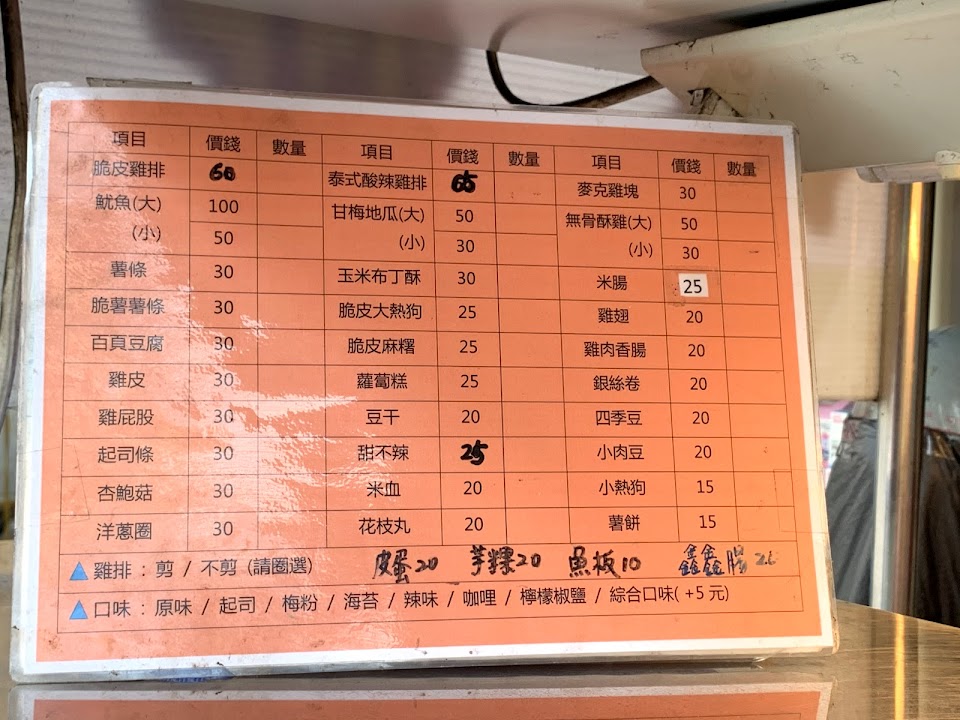 項目 價錢 數量 項目 價錢 數量 項目 價錢 數量
脆皮雞排 60 泰式酸辣雞排 65 麥克雞塊 30
魷魚(大) 100 甘梅地瓜(大) 50 無骨酥雞(大) 50
(小) 50 (小) 30 (小) 30
薯條 30 玉米布丁酥 30 米腸 25
脆薯薯條 30 脆皮大熱狗 25 雞翅 20
百頁豆腐 30 脆皮麻糬 25 雞肉香腸 20
雞皮 30 蘿蔔糕 25 銀絲卷 20
雞屁股 30 豆干 20 四季豆 20
起司條 30 甜不辣 25 小肉豆 20
杏鮑菇 30 米血 20 小熱狗 15
洋蔥圈 30 花枝丸 20 薯餅 15
▲雞排 : 剪 / 不剪 (請圈選) 皮蛋20 芋粿20 魚板10 鑫鑫腸
▲口味 : 原味 / 起司 / 梅粉 / 海苔 / 辣味 / 咖哩 / 檸檬椒鹽 / 綜合口味( +5 元)